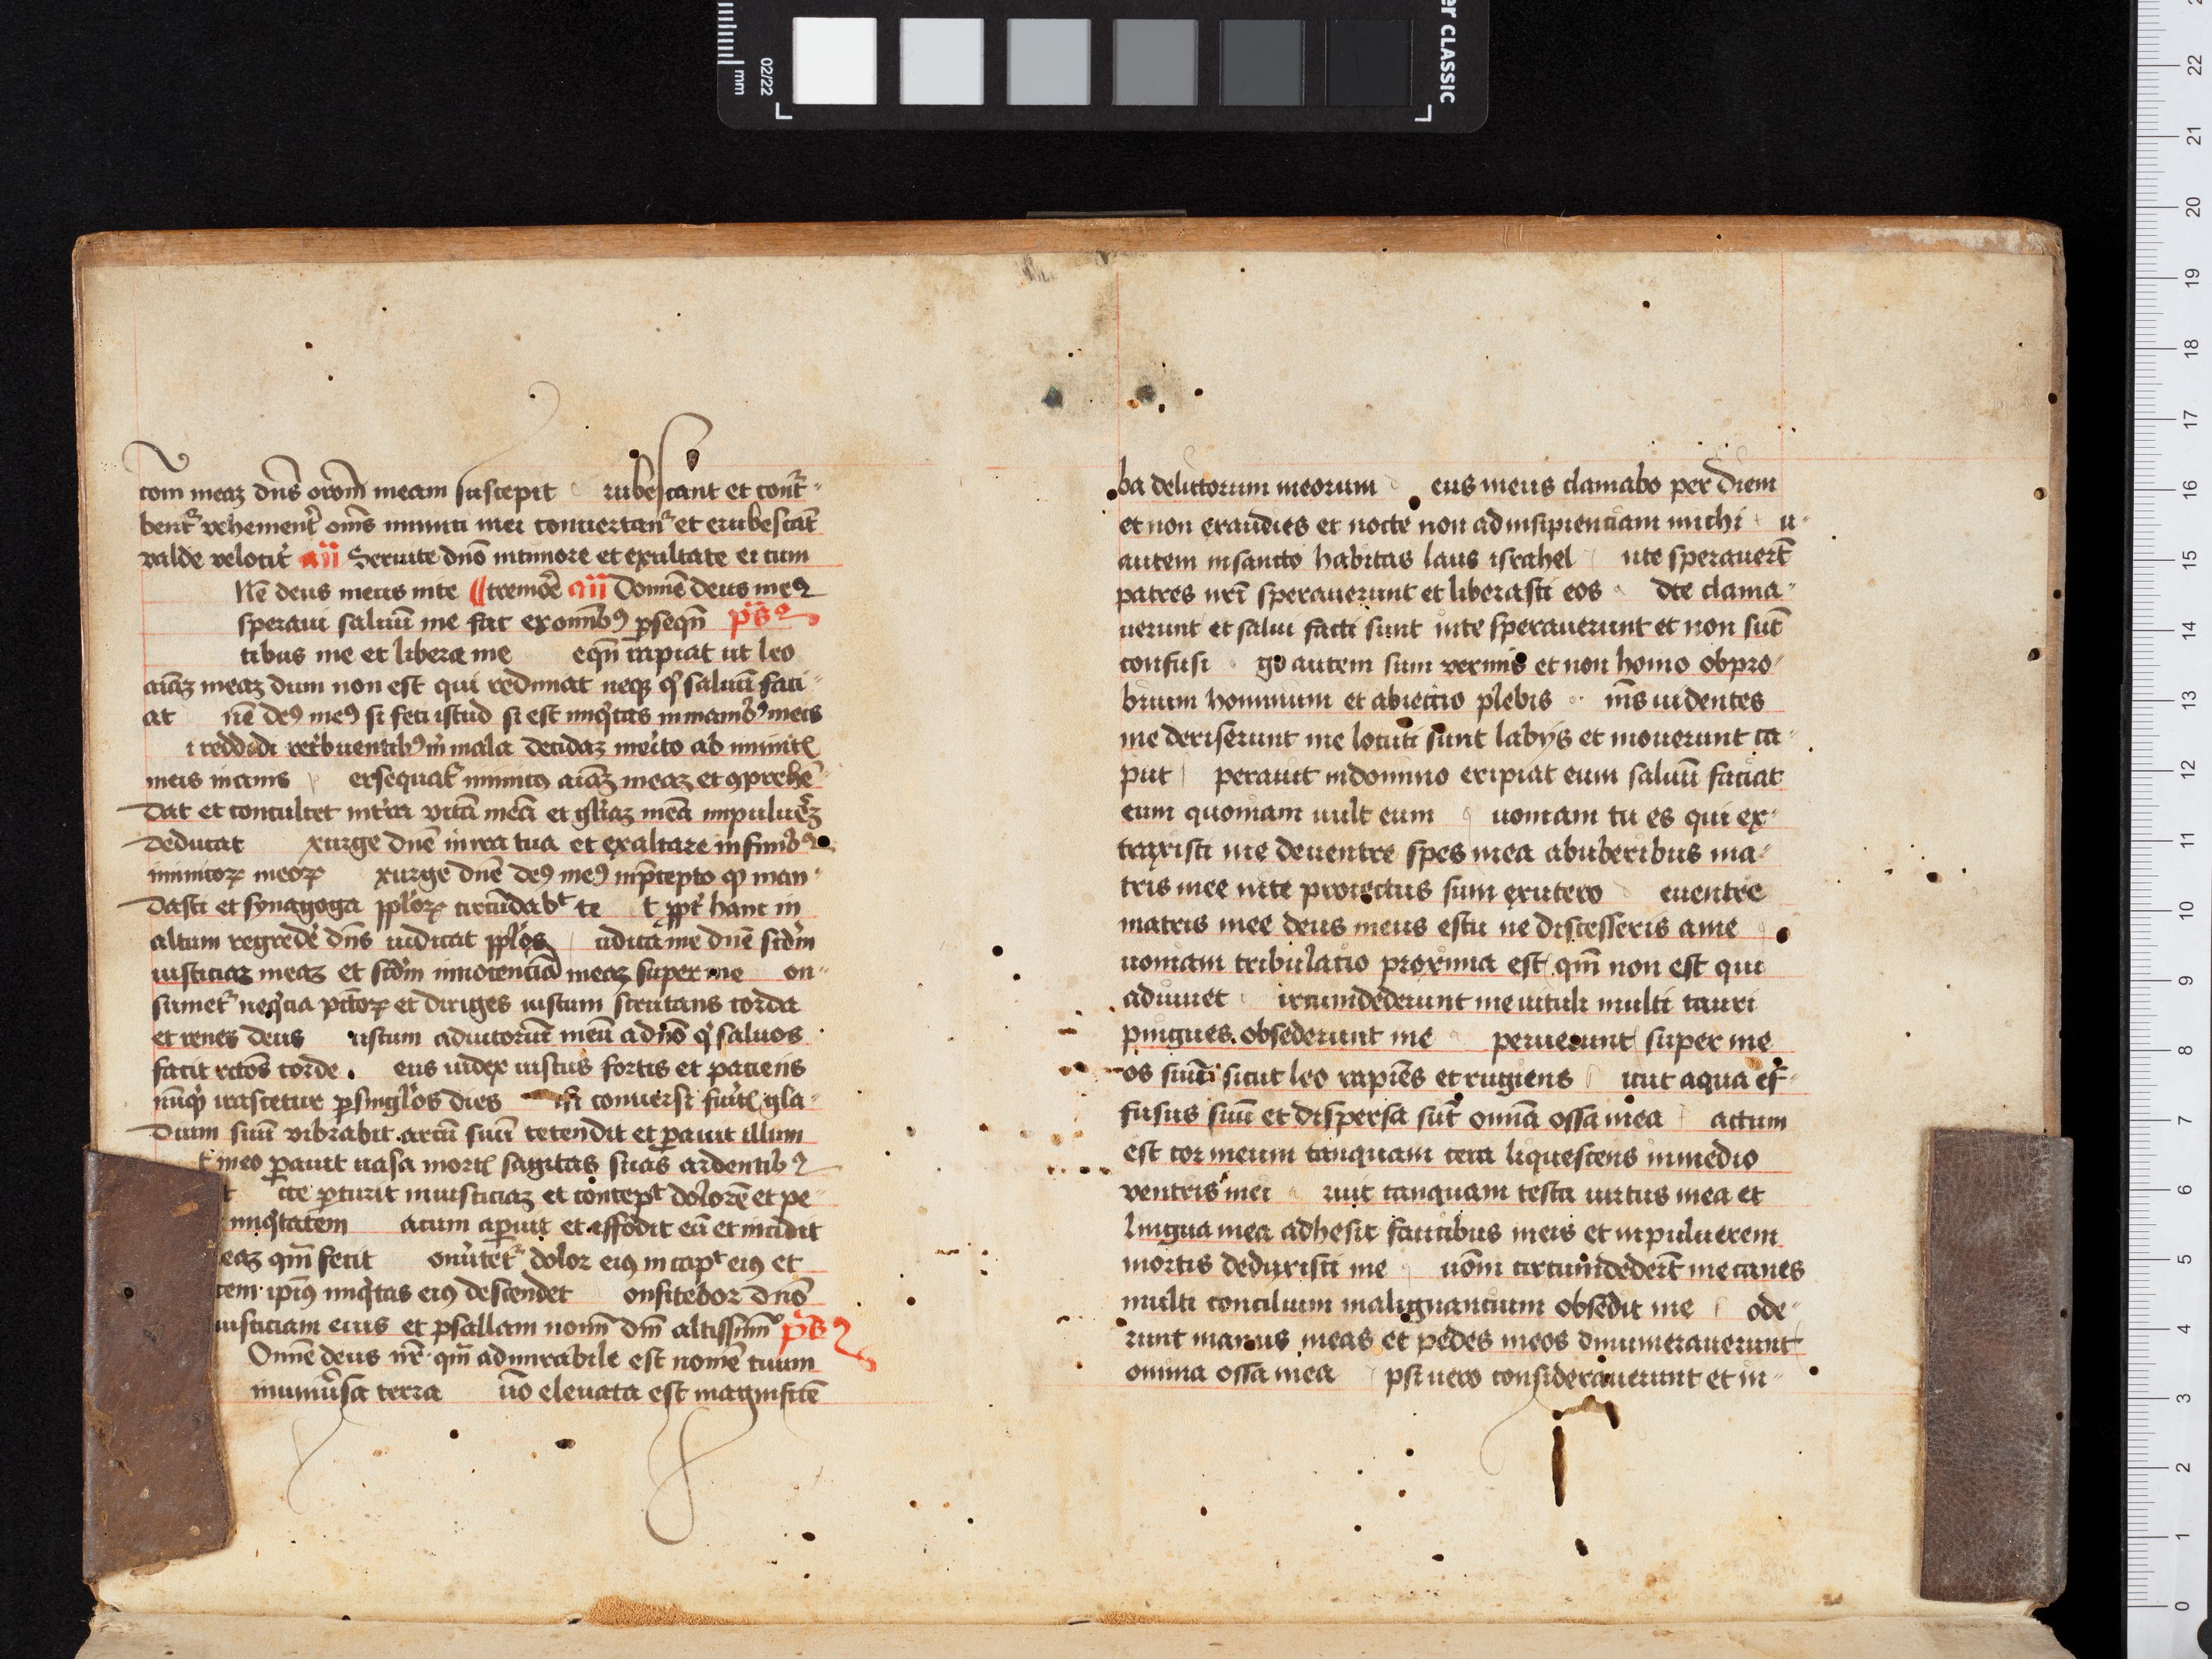 02/22
mm
er CLASSIC
com meaʒ dn̄s orom̄ meam suscepit rubescant et cont̄r
bent᷑ vehement̄ om̄s inimici mei convertan᷑ et erubescāt
valde velocit̄ aīī Servite dn̄o intimore et exultate ei cum
Nē deus meus inte tremōre aīī Domīe deus meꝰ
speravi salvū me fac exomībꝰ ꝑseqn̄ ps̄
tibus me et libera me eqn̄ rapiat ut leo
aīaʒ meaʒ dum non est qui redimat neqꝫ q̄ salvū faci
at nē deꝰ meꝰ si feci istud si est iniq̄tas inmanibꝰ meis
i reddidi ret̄buentibꝰ m̄ mala decidaʒ meīto ab inimicꝭ
meis inanis ersequat᷑ inimicꝰ aīaʒ meaʒ et ꝯprehē
dat et conculcet int̄ra vitā meā et glīaʒ meā inpulverē
deducat xurge dn̄e inira tua et exaltare infinibꝰ
inimicoꝝ meoꝝ xurge dn̄e deꝰ meꝰ inp̄cepto qd̄ man
dasti et synagoga ppl̄oꝝ circūdabt te t ppt̄ hanc in
altum regredē dn̄s iudicat ppl̄os udica me dn̄e scd̄m
iusticiaʒ meaʒ et scd̄m innocenciā meaʒ super me on
sumet᷑ neq̄cia pctōꝝ et diriges iustum scrutans corda
et renes deus ustum adiutoriū meū adn̄o q̄ salvos
facit rctōs corde eus iudex iustus fortis et paciens
nūqd̄ irascetur ꝑsinglōs dies conversi fūitꝭ gla
dium suū vibrabit arcū suū tetendit et ꝑavit illum
t meo ꝑavit vasa mortꝭ sagitas suas ardentibꝰ
cce ꝑturit iniusticiaʒ et concept dolorē et pe
iniq̄tatem acum aꝑuit et effodit eū et incidit
eaʒ qm̄ fecit onv̄tet᷑ dolor eiꝰ incapt eiꝰ et
cem ip̄iꝰ iniq̄tas eiꝰ descendet onfitebor dn̄o
iusticiam eius et psallam nom̄i dn̄i altissimī ps̄
Omīe deus nr̄ qm̄ admirabile est nomē tuum
inunīv̄sa terra qm̄ elevata est magnificē
ba delictorum meorum eus meus clamabo per diem
et non exaudies et nocte non adinsipienciam michi u
autem insancto habitas laus israhel nte speraverūt
patres nr̄i speraverunt et liberasti eos dte clama
verunt et salvi facti sunt inte speraverunt et non sūt
confusi go autem sum vermis et non homo obpro
brium hominum et abiectio plebis mn̄s videntes
me deriserunt me locuti sunt labijs et moverunt ca
put peravit indomino eripiat eum salvū faciat
eum quoniam vult eum uoniam tu es qui ex
traxisti me deventre spes mea abuberibus ma
tris mee inte proiectus sum exutero eventre
matris mee deus meus estu ne discesseris ame
uoniam tribulacio proxima est qm̄ non est qui
adiuvet ircumdederunt me vituli multi tauri
pingues obsederunt me peruerunt super me
os suū sicut leo rapiēs et rugiens icut aqua ef
fusus sūu et dispersa sūt omnia ossa mea actum
est cor meum tanquam cera liquescens inmedio
ventris mei ruit tanquam testa virtus mea et
lingua mea adhesit faucibus meis et inpulverem
mortis deduxisti me uōm circumdederūt me canes
multi concilium malignancium obsedit me ode
runt manus meas et pedes meos dinumeraverunt
omnia ossa mea psi vero consideraverunt et in
22
21
20
19
18
17
16
15
14
13
12
11
10
9
8
7
6
5
4
3
2
1
0